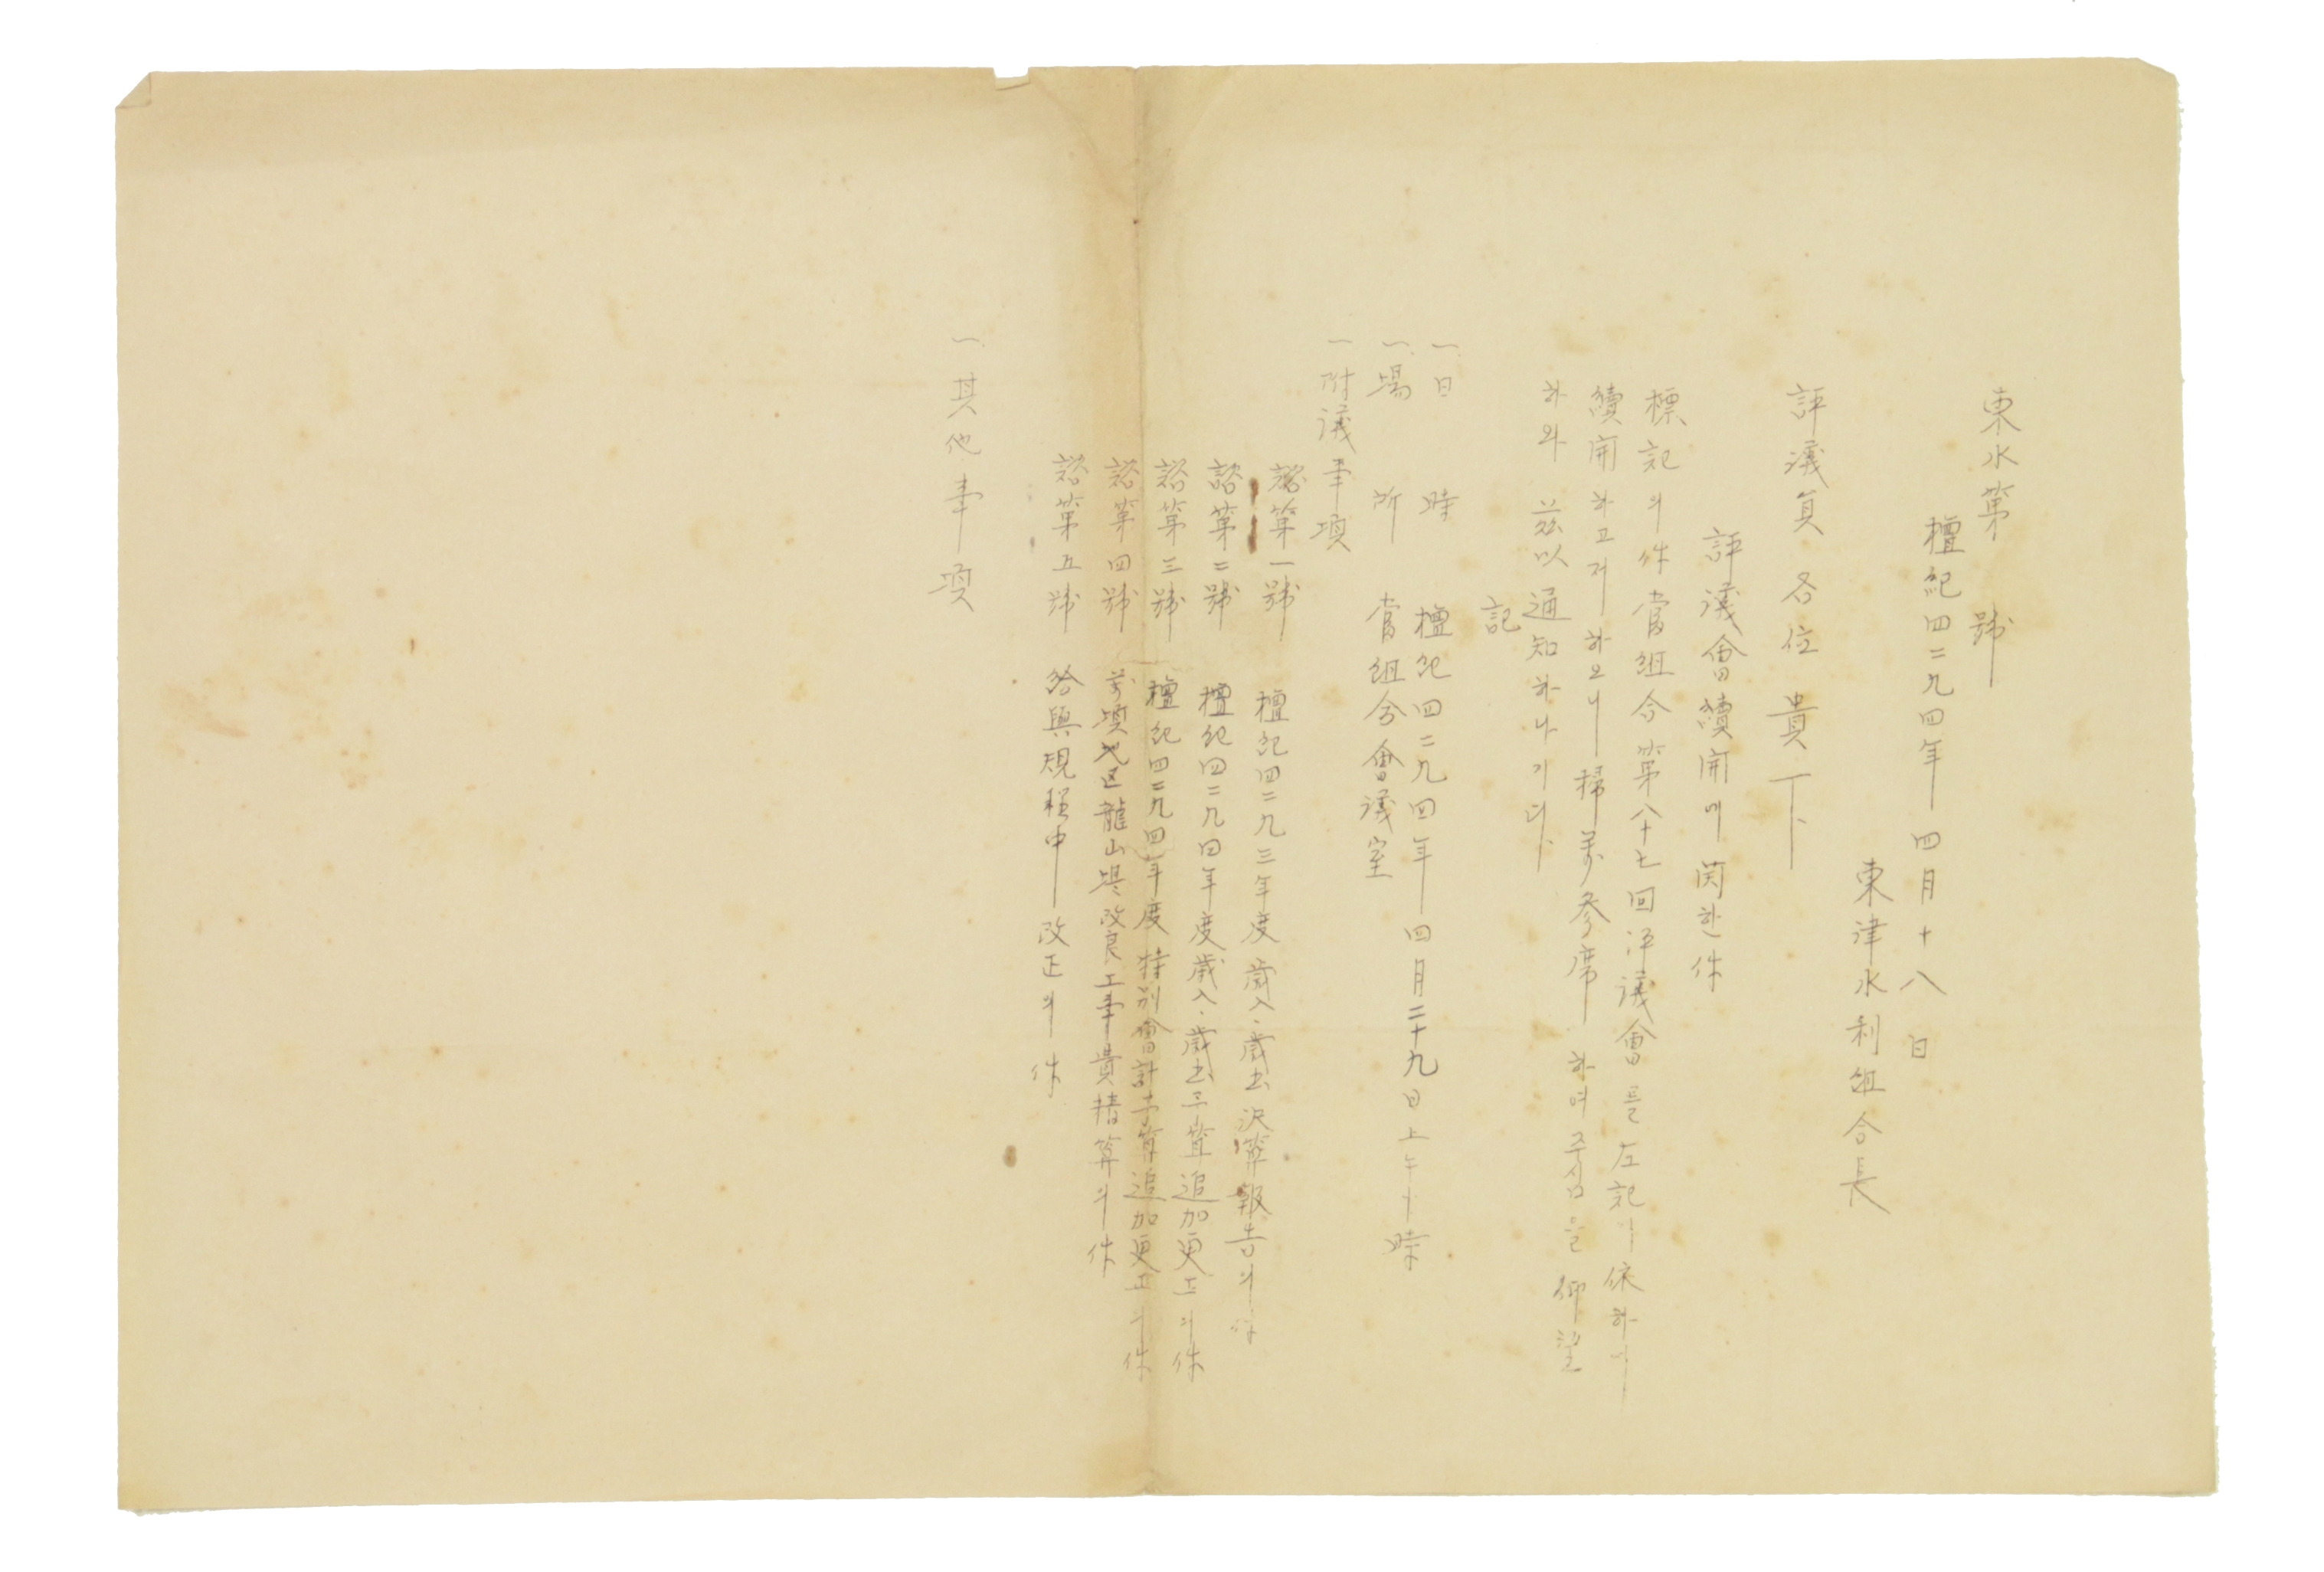 東水第　號
檀紀四二九四年 四月十八日
東津水利組合長
評議員 各位 貴下
評議會續開에 関한 件
標記의 件 當組合 第八十七回 評議會를 左記에 依하여
續開하고저 하오니 掃萬參席하여 주심을 仰望
하와 玆以通知하나이다
記
一 日 時 檀紀四二九四年 四月二十九日 上午 時
一 場 所 當組合會議室
一 附議事項
諮第一號 檀紀四二九三年度 歲入、歲出 決算報告의 件
諮第二號 檀紀四二九四年度 歲入、歲出 予算追加更正의 件
諮第三號 檀紀四二九四年度 特別會計予算追加更正의 件
諮第四號 萬頃地区龍山堤改良工事費精算의 件
諮第五號 給與規程中 改正의 件
一 其他事項